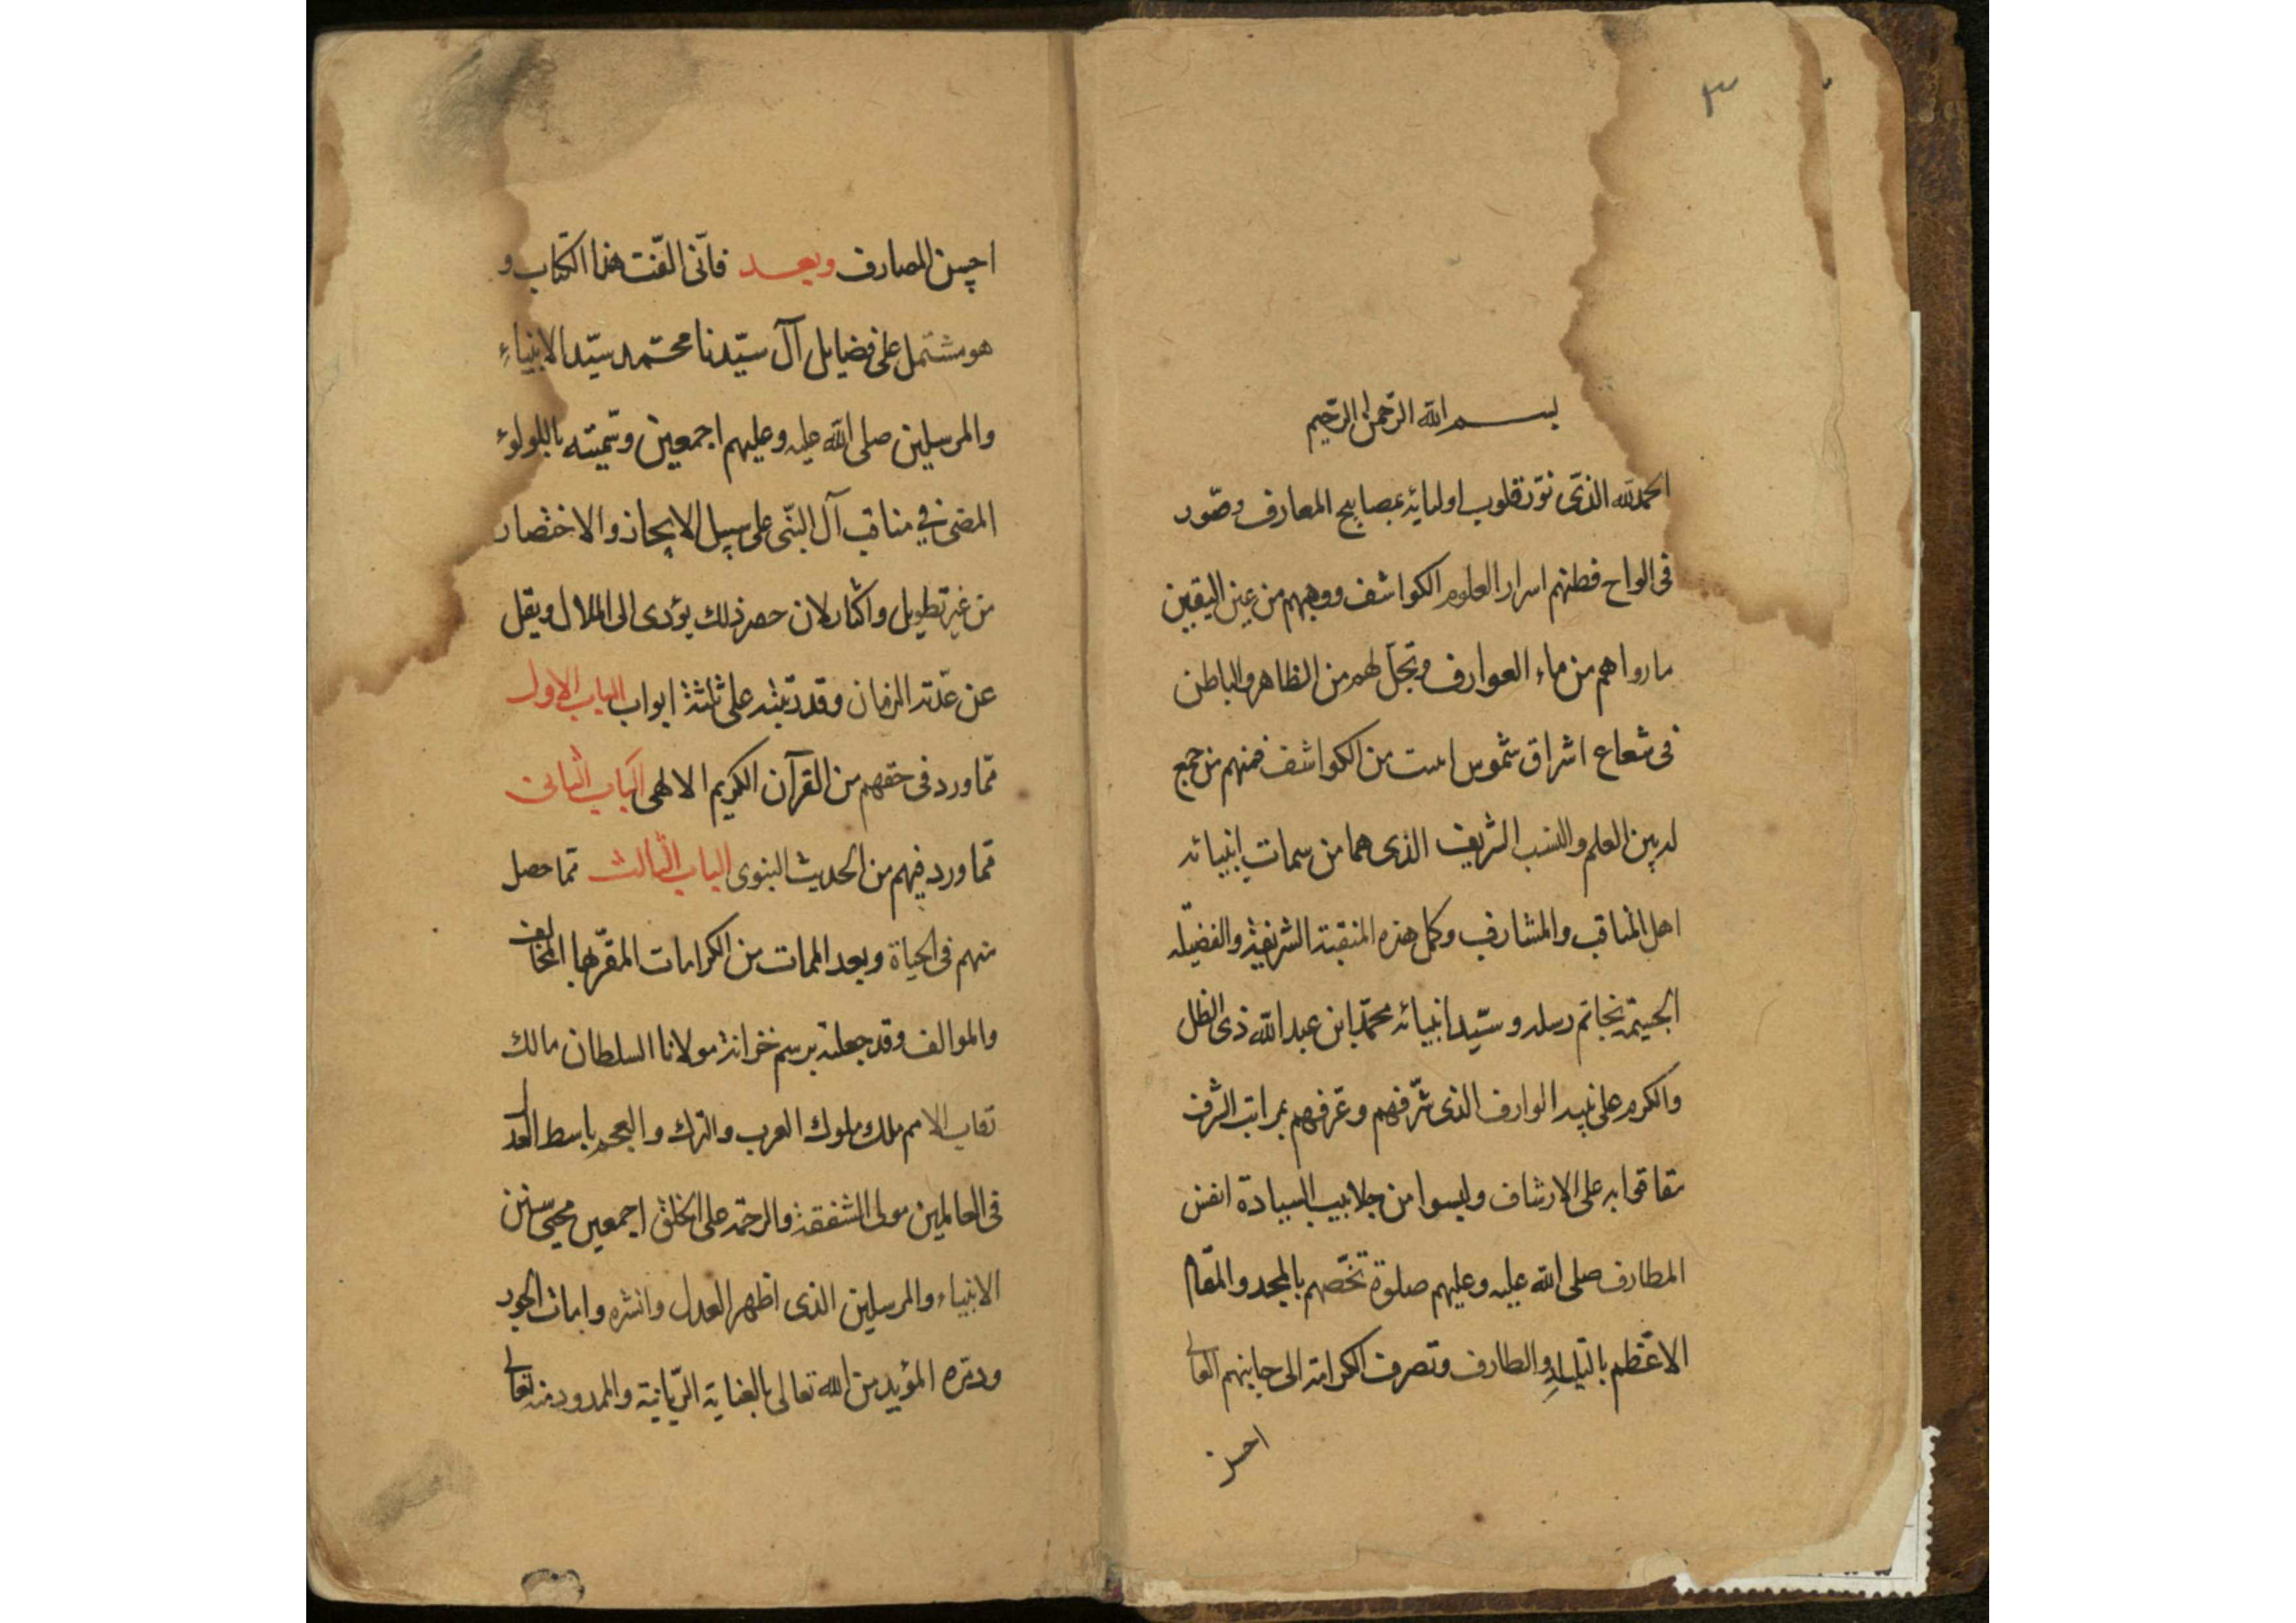 ٣
بسم الله الرحمن الرحيم
الحمدلله الذى نوّر قلوب اوليائه بمصابيح المعارف وصوّر
فى الواح فطنهم اسرار العلوم الكواشف ووجههم من عين اليقين
ما رواهم من ماء العوارف وتجلّ لهم من الظاهر والباطن
فى شعاع اشراق شموس من الكواشف فمنهم من جمع
لديه بين العلم والنسب الشريف الذى هما من سمات انبيائه
اهل المناقب والمشارف وكمل هذه المنقبة الشريفة والفضيلة
الجسيمة بخاتم رسله وسيّد انبيائه محمّد ابن عبد الله ذى الظل
والكرم على الوارف الذى شرّفهم وعرّفهم بمراتب الشرف
على الارشاف ولبسوا من جلابيب السيادة انفس
المطارف صلى الله عليه وعليهم صلوة تخصّهم بالمجد والمقام
الاعظم بالتليد والطارف وتصرف الكرامة الى جانبهم العالى
احسن
احسن المصارف وبعد فانّى الّفت هذا الكتاب و
هو مشتمل على فضايل آل سيّدنا محمّد سيّد الانبياء
والمرسلين صلى الله عليه وعليهم اجمعين وسمّيته باللولوء
المضىء فى مناقب آل النبّى على سبيل الايجاز والاختصار
من غير تطويل واكثار لان حصر ذلك يؤدى الى الملال ويقل
عن عدّته الزمان وقد رتبته على ثلثة ابواب الباب الاول
ممّا ورد فى حقهم من القرآن الكريم الالهى الباب الثانى
ممّا ورد فيهم من الحديث النبوى الباب الثالث ممّا حصل
منهم فى الحياة وبعد الممات من الكرامات المقرّ بها المخالف
والموالف وقد جعلته برسم خزانة مولانا السلطان مالك
رقاب الامم ملك ملوك العرب والترك والعجم باسط العدل
فى العالمين مولى الشفقة والرحمة على الخلق اجمعين محيى سنن
الانبياء والمرسلين الذى اظهر العدل وانشره وامات الجور
ودمّره المؤيد من الله تعالى بالعناية الربّانية والممدود منه تعالى